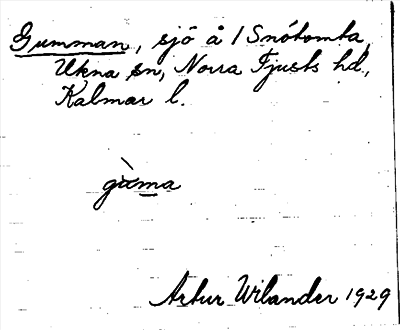 Gumman, sjö å 1 Snótomta,
Ukna sn, Norra Tjusts hd,
Kalmar l.
gùma
Artur Wilander 1929